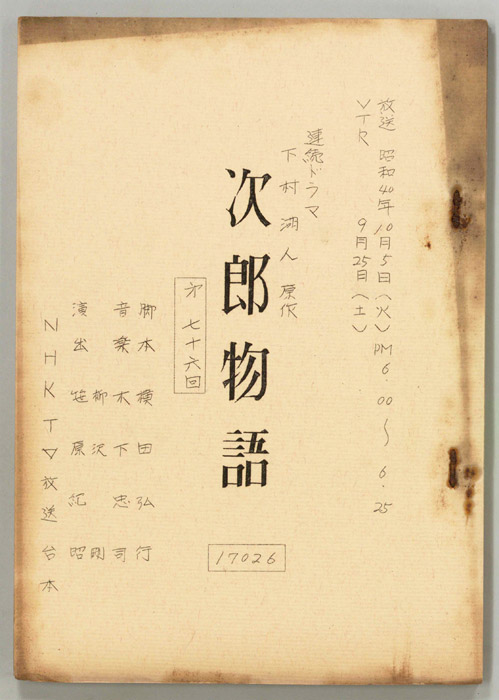 放送 昭和40年10月5日(火)PM6.00〜6.25
VTR 9月25日(土)
連続ドラマ
下村湖人 原作
次郎物語
17026
第七十六回
脚本 横田弘行
音楽 木下忠司
演出 笹原紀昭
柳沢 剛
NHKTV放送台本